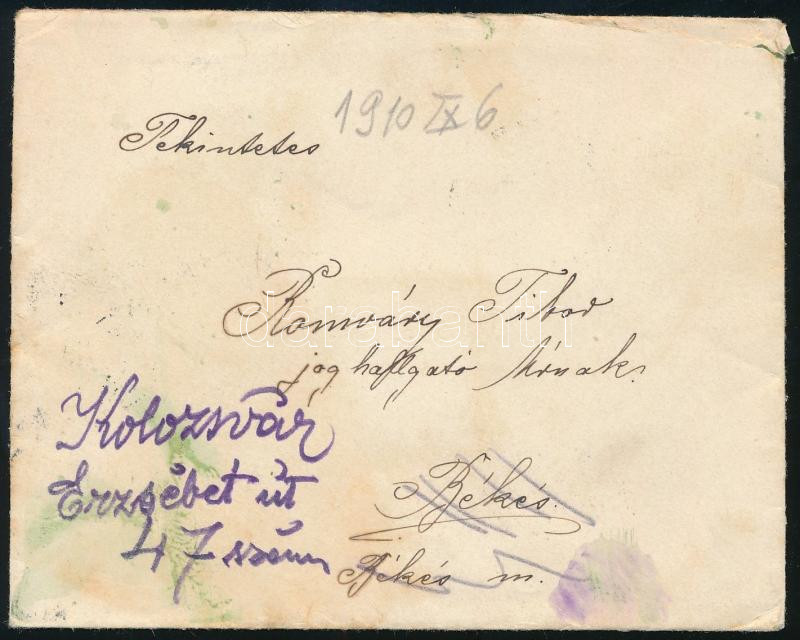 1910 IX 6
Tekintetes
Romváry Tibor
jog hallgató Úrnak
darabanth
Kolozsvár
Erzsébet út
47 szám
Békés.
Békés m.